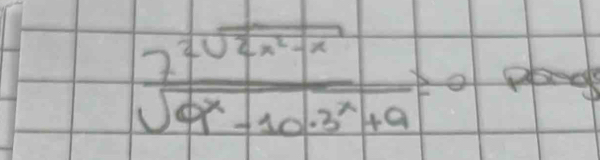 7^{2\sqrt{2x^2-x}}
\sqrt{9^x-10\cdot3^x+9} ≥ 0